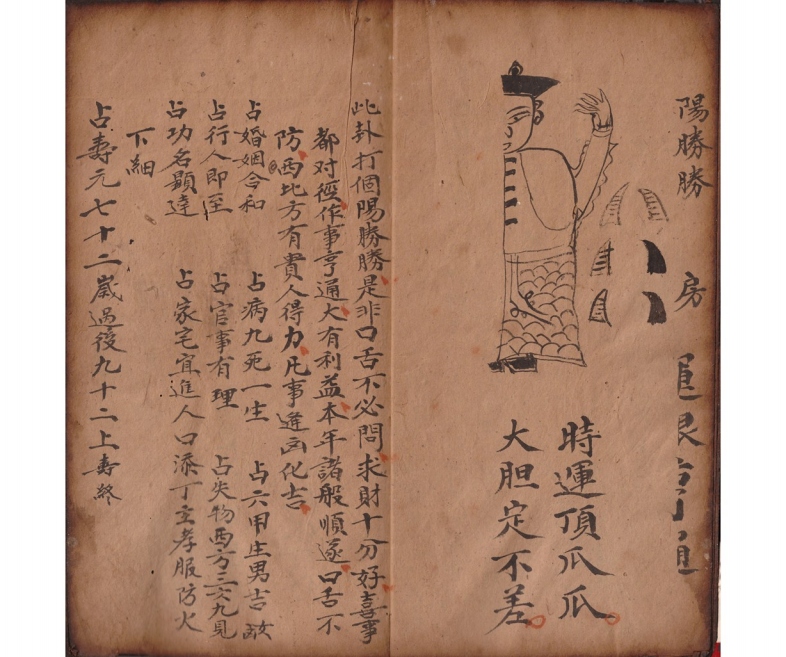 陽勝勝　房
時運頂瓜瓜
大胆定不差
此卦打個陽勝勝是非口舌不必問求財十分好喜事
都对徑作事亨通大有利益本年諸般順遂口舌不
防西北方有貴人得力凡事逢凶化吉
占婚姻合和　占病九死一生　占六甲生男吉
占行人即至　占官事有理　占失物西方三六九見
占功名顯達　占家宅宜進人口添丁主孝服防火
下細
占壽元七十二歲過後九十二上壽終